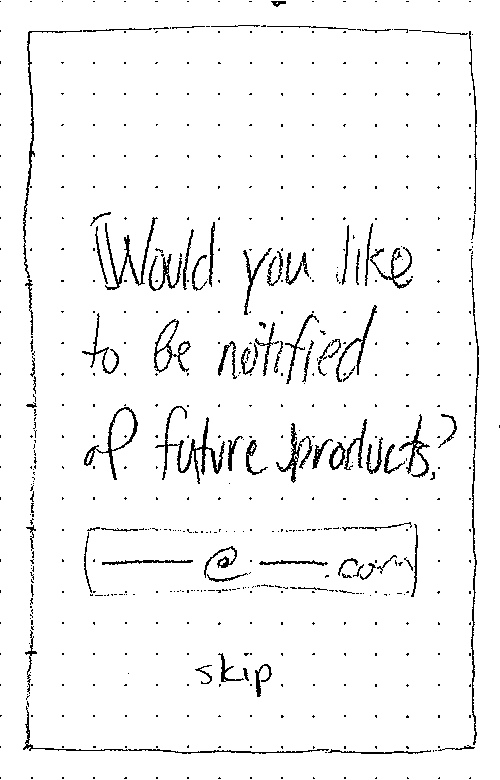 Would you like
to be notified
of future products?
@ .com
skip